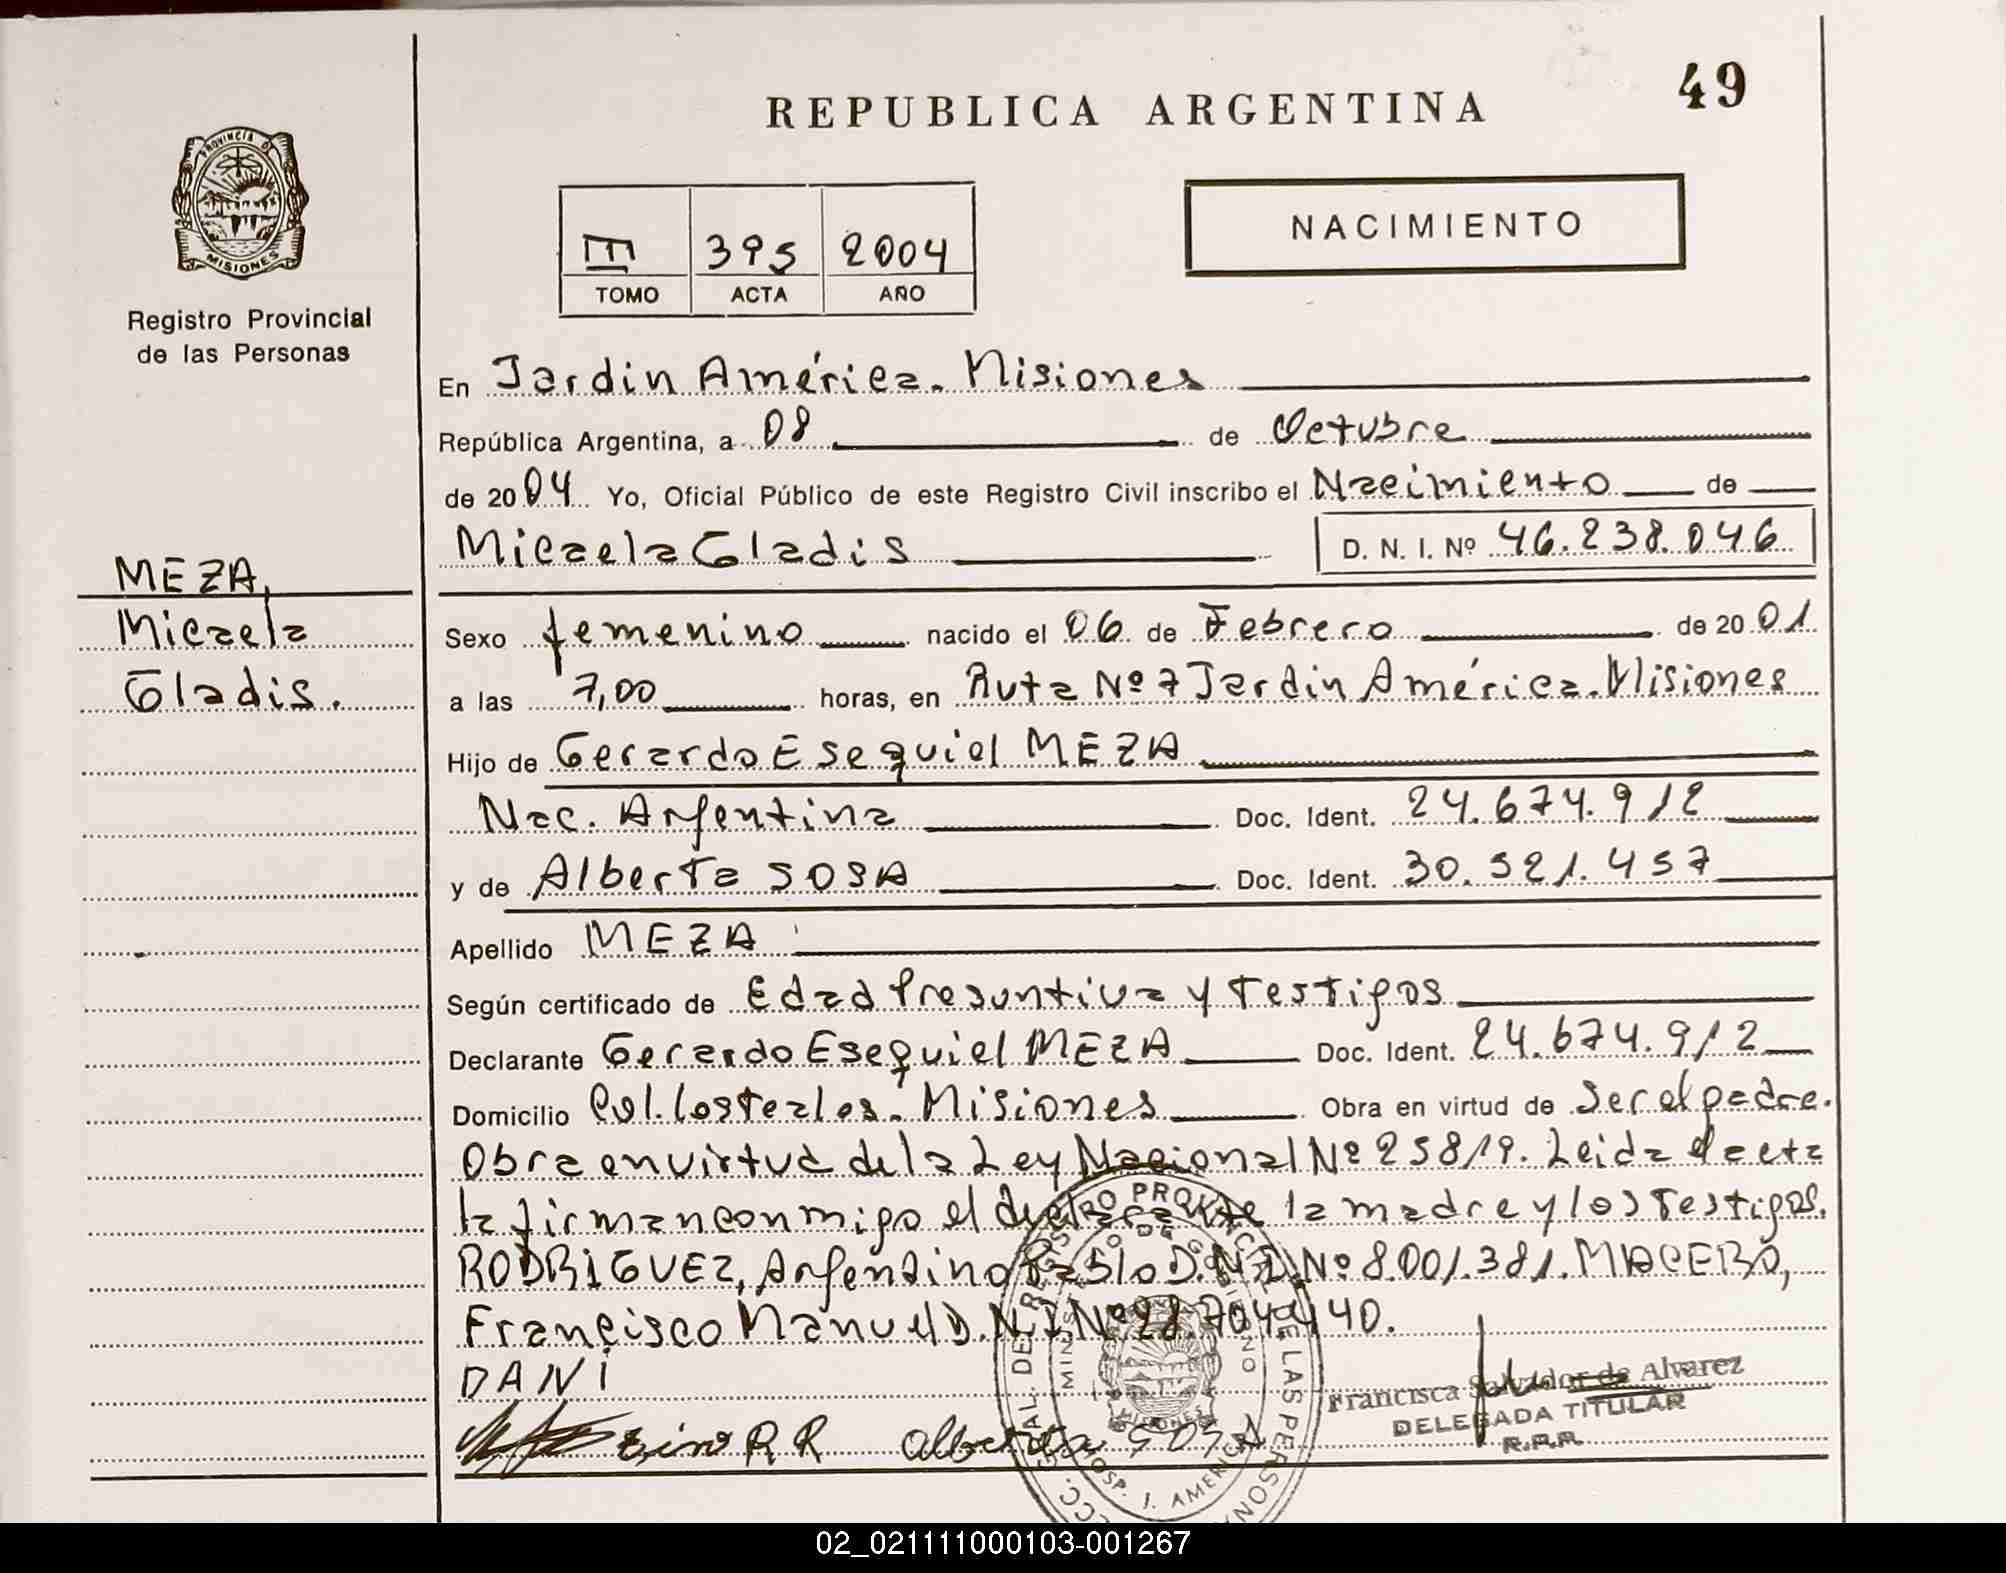 REPUBLICA ARGENTINA
49
PROVINCIA DE
MISIONES
Registro Provincial
de las Personas
III 395 2004
TOMO ACTA AÑO
NACIMIENTO
En Jardin América. Misiones
República Argentina, a 08 de Octubre
de 2004 Yo, Oficial Público de este Registro Civil inscribo el Nacimiento de
Micaela Gladis D. N. I. Nº 46.238.046
MEZA,
Micaela
Gladis.
Sexo femenino nacido el 06 de Febrero de 2001
a las 7,00 horas, en Ruta Nº 7 Jardin América. Misiones
Hijo de Gerardo Esequiel MEZA
Nac. Argentina Doc. Ident. 24.674.912
y de Alberta SOSA Doc. Ident. 30.521.457
Apellido MEZA
Según certificado de Edad Presuntiva y Testigos
Declarante Gerardo Esequiel MEZA Doc. Ident. 24.674.912
Domicilio Col. Los Teales. Misiones Obra en virtud de Ser el padre.
Obra en virtud de la Ley Nacional Nº 25819. Leida el acta
la firman conmigo el declarante la madre y los Testigos.
RODRIGUEZ, Argentino Pablo D.N.I. Nº 8.001.381. MACEBO,
Francisco Manuel D.N.I. Nº 28.704.440.
DANI
R R Alberta SOSA
Francisca Salvador de Alvarez
DELEGADA TITULAR
R.P.P.
REGISTRO PROVINCIAL DE LAS PERSONAS
MINISTERIO DE GOBIERNO
MISIONES
HOSP. J. AMERICA
02_021111000103-001267